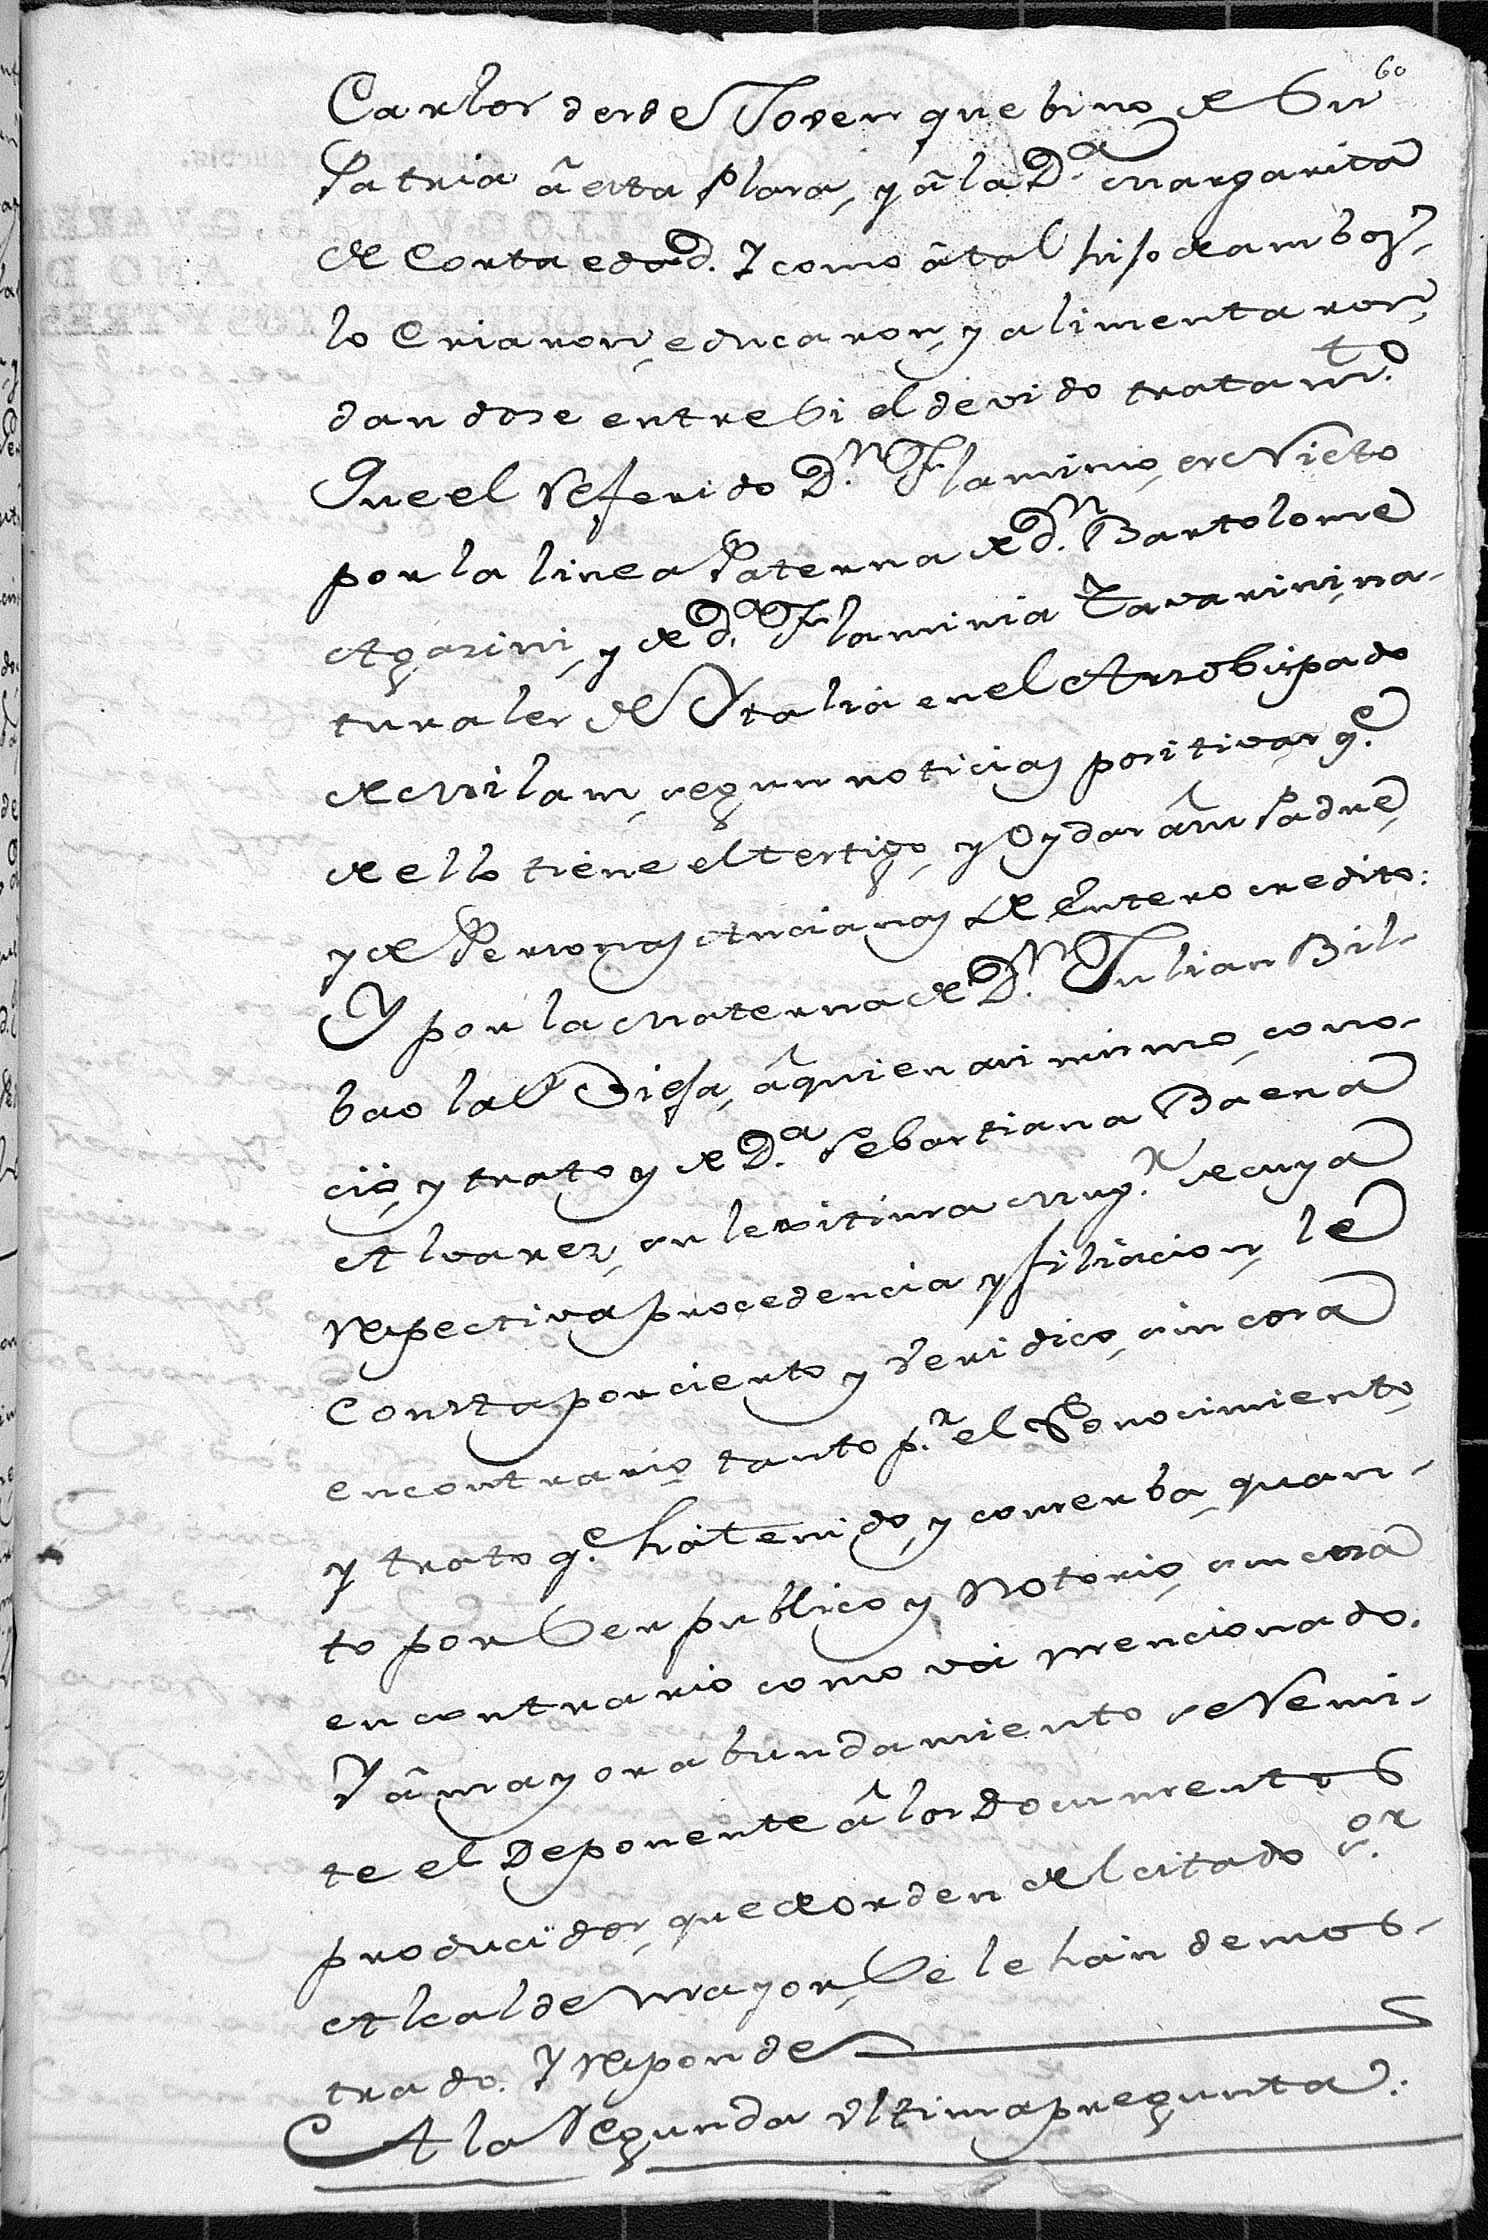 60
Carlos desde Joven que bino de Su
Patria â esta Plaza, y â la D.ª Margarita
de Corta edad. Y como â tal hijo de ambos,
lo Criaron, educaron, y alimentaron,
dandose entre Si el devido tratam.to
Que el Referido D.n Flaminio, es Nieto
por la linea Paterna de d.n Bartolome
Agazini, y de d.ª Flaminia Tavarini, na-
turales de Ytalia en el Arzobispado
de Milan, segun noticias positivas q.e
de ello tiene el testigo, y Oydas â su Padre,
y de Personas Ancianas de Entero credito:
Y por la Materna de D.n Julian Bil-
bao la Vieja, â quien asi mismo, cono-
ciò, y trato y de D.ª Sebastiana Baena
Alvarez, su lexitima Mug.r de cuya
respectiva procedencia y filiacion, le
Consta por cierto y Veridico, sin cosa
encontrario tanto p.r el Conocimiento
y trato q.e há tenido, y conserba, quan-
to por Ser publico y Notorio, sin cosa
encontrario como vá mencionado.
Y â mayor abundamiento se Remi-
te el Deponente â los Documentos
producidos, que de orden del citado S.or
Alcalde mayor, Se le hán demos-
trado. Y responde
A la Segunda Ultima pregunta: